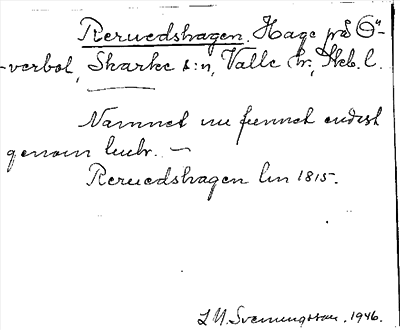 Rerucdshagen. Hage på Ö-
-verbol, Skarke s:n, Valle hr., Skb. l.
Namnet nu funnet endast
genom lmhr. —
Rerucdshagen Lm 1815.
L M. Svenungsson. 1946.